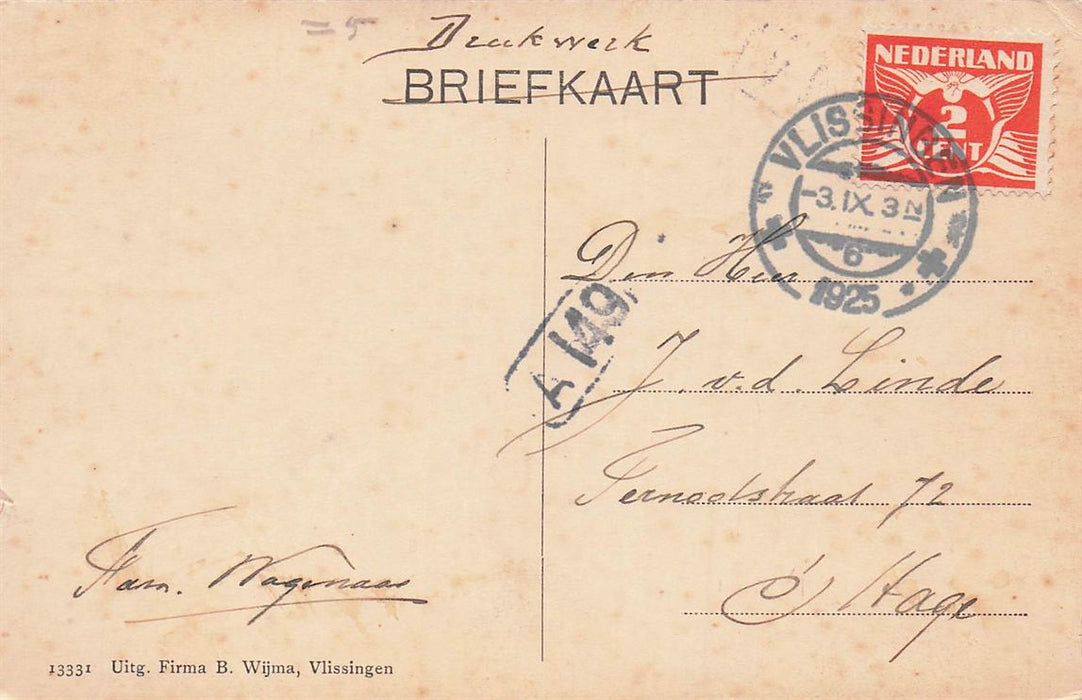 = 5
Drukwerk
BRIEFKAART
NEDERLAND
2
CENT
VLISSINGEN
-3.IX.3N
6
1925
Den Heer
A 149
J. v. d. Linde
72
's Hage
Fam. Wagenaar
13331 Uitg. Firma B. Wijma, Vlissingen